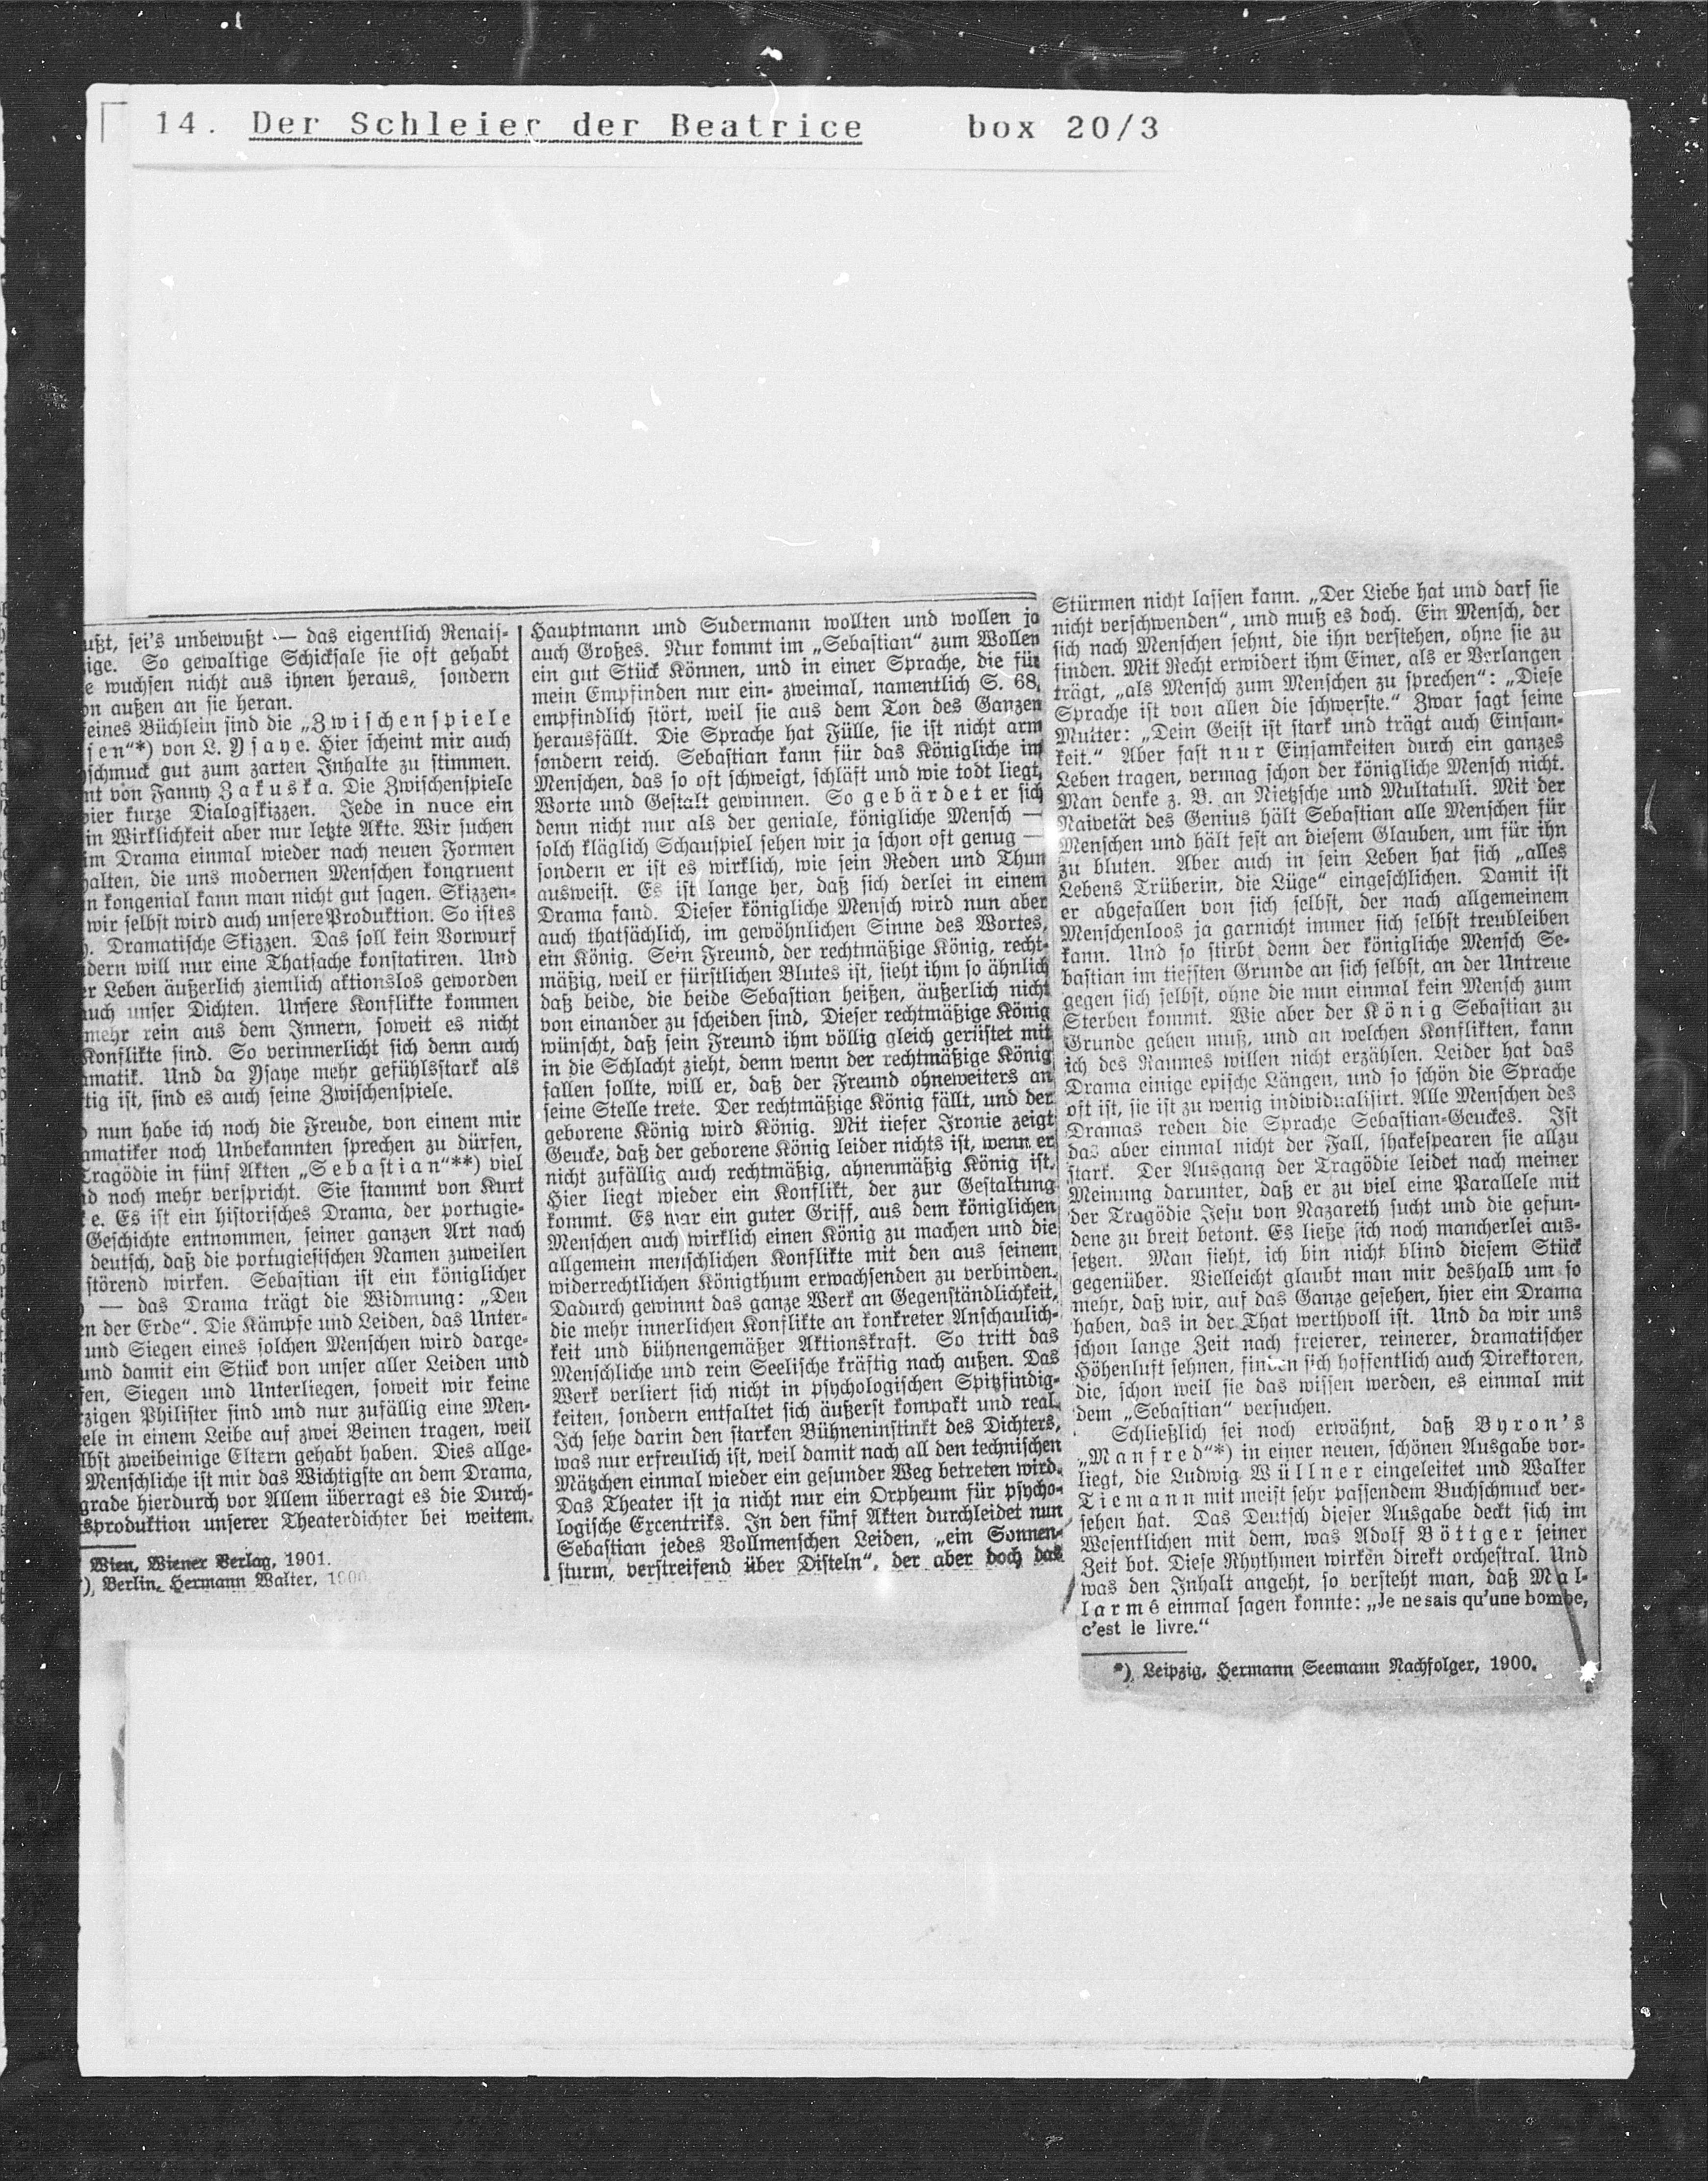 14. Der Schleier der Beatrice box 20/3
ußt, sei's unbewußt — das eigentlich Renais-
ige. So gewaltige Schicksale sie oft gehabt
e wuchsen nicht aus ihnen heraus, sondern
on außen an sie heran.
eines Büchlein sind die „Zwischenspiele
sen“*) von L. Ysaye. Hier scheint mir auch
schmuck gut zum zarten Inhalte zu stimmen.
nt von Fanny Zakuska. Die Zwischenspiele
vier kurze Dialogskizzen. Jede in nuce ein
in Wirklichkeit aber nur letzte Akte. Wir suchen
im Drama einmal wieder nach neuen Formen
halten, die uns modernen Menschen kongruent
n kongenial kann man nicht gut sagen. Skizzen-
wir selbst wird auch unsere Produktion. So ist es
h. Dramatische Skizzen. Das soll kein Vorwurf
dern will nur eine Thatsache konstatiren. Und
er Leben äußerlich ziemlich aktionslos geworden
auch unser Dichten. Unsere Konflikte kommen
mehr rein aus dem Innern, soweit es nicht
Konflikte sind. So verinnerlicht sich denn auch
amatik. Und da Ysaye mehr gefühlsstark als
tig ist, sind es auch seine Zwischenspiele.
d nun habe ich noch die Freude, von einem mir
amatiker noch Unbekannten sprechen zu dürfen,
Tragödie in fünf Akten „Sebastian“**) viel
nd noch mehr verspricht. Sie stammt von Kurt
e. Es ist ein historisches Drama, der portugie-
Geschichte entnommen, seiner ganzen Art nach
deutsch, daß die portugiesischen Namen zuweilen
störend wirken. Sebastian ist ein königlicher
— das Drama trägt die Widmung: „Den
en der Erde“. Die Kämpfe und Leiden, das Unter-
und Siegen eines solchen Menschen wird darge-
und damit ein Stück von unser aller Leiden und
fen, Siegen und Unterliegen, soweit wir keine
rzigen Philister sind und nur zufällig eine Men-
ele in einem Leibe auf zwei Beinen tragen, weil
lbst zweibeinige Eltern gehabt haben. Dies allge-
Menschliche ist mir das Wichtigste an dem Drama,
grade hierdurch vor Allem überragt es die Durch-
sproduktion unserer Theaterdichter bei weitem.
Wien, Wiener Verlag, 1901.
), Berlin, Hermann Walter, 1900
Hauptmann und Sudermann wollten und wollen ja
auch Großes. Nur kommt im „Sebastian“ zum Wollen
ein gut Stück Können, und in einer Sprache, die für
mein Empfinden nur ein- zweimal, namentlich S. 68,
empfindlich stört, weil sie aus dem Ton des Ganzen
herausfällt. Die Sprache hat Fülle, sie ist nicht arm
sondern reich. Sebastian kann für das Königliche im
Menschen, das so oft schweigt, schläft und wie todt liegt,
Worte und Gestalt gewinnen. So gebärdet er sich
denn nicht nur als der geniale, königliche Mensch —
solch kläglich Schauspiel sehen wir ja schon oft genug —
sondern er ist es wirklich, wie sein Reden und Thun
ausweist. Es ist lange her, daß sich derlei in einem
Drama fand. Dieser königliche Mensch wird nun aber
auch thatsächlich, im gewöhnlichen Sinne des Wortes,
ein König. Sein Freund, der rechtmäßige König, recht-
mäßig, weil er fürstlichen Blutes ist, sieht ihm so ähnlich
daß beide, die beide Sebastian heißen, äußerlich nicht
von einander zu scheiden sind. Dieser rechtmäßige König
wünscht, daß sein Freund ihm völlig gleich gerüstet mit
in die Schlacht zieht, denn wenn der rechtmäßige König
fallen sollte, will er, daß der Freund ohneweiters an
seine Stelle trete. Der rechtmäßige König fällt, und der
geborene König wird König. Mit tiefer Ironie zeigt
Geucke, daß der geborene König leider nichts ist, wenn er
nicht zufällig auch rechtmäßig, ahnenmäßig König ist.
Hier liegt wieder ein Konflikt, der zur Gestaltung
kommt. Es war ein guter Griff, aus dem königlichen
Menschen auch wirklich einen König zu machen und die
allgemein menschlichen Konflikte mit den aus seinem
widerrechtlichen Königthum erwachsenden zu verbinden.
Dadurch gewinnt das ganze Werk an Gegenständlichkeit,
die mehr innerlichen Konflikte an konkreter Anschaulich-
keit und bühnengemäßer Aktionskraft. So tritt das
Menschliche und rein Seelische kräftig nach außen. Das
Werk verliert sich nicht in psychologischen Spitzfindig-
keiten, sondern entfaltet sich äußerst kompakt und real.
Ich sehe darin den starken Bühneninstinkt des Dichters,
was nur erfreulich ist, weil damit nach all den technischen
Mätzchen einmal wieder ein gesunder Weg betreten wird.
Das Theater ist ja nicht nur ein Orpheum für psycho-
logische Excentriks. In den fünf Akten durchleidet nun
Sebastian jedes Vollmenschen Leiden, „ein Sonnen-
sturm, verstreifend über Disteln“, der aber doch das
Stürmen nicht lassen kann. „Der Liebe hat und darf sie
nicht verschwenden“, und muß es doch. Ein Mensch, der
sich nach Menschen sehnt, die ihn verstehen, ohne sie zu
finden. Mit Recht erwidert ihm Einer, als er Verlangen
trägt, „als Mensch zum Menschen zu sprechen“: „Diese
Sprache ist von allen die schwerste.“ Zwar sagt seine
Mutter: „Dein Geist ist stark und trägt auch Einsam-
keit.“ Aber fast nur Einsamkeiten durch ein ganzes
Leben tragen, vermag schon der königliche Mensch nicht.
Man denke z. B. an Nietzsche und Multatuli. Mit der
Naivetät des Genius hält Sebastian alle Menschen für
Menschen und hält fest an diesem Glauben, um für ihn
zu bluten. Aber auch in sein Leben hat sich „alles
Lebens Trüberin, die Lüge“ eingeschlichen. Damit ist
er abgefallen von sich selbst, der nach allgemeinem
Menschenloos ja garnicht immer sich selbst treubleiben
kann. Und so stirbt denn der königliche Mensch Se-
bastian im tiefsten Grunde an sich selbst, an der Untreue
gegen sich selbst, ohne die nun einmal kein Mensch zum
Sterben kommt. Wie aber der König Sebastian zu
Grunde gehen muß, und an welchen Konflikten, kann
ich des Raumes willen nicht erzählen. Leider hat das
Drama einige epische Längen, und so schön die Sprache
oft ist, sie ist zu wenig individualisirt. Alle Menschen des
Dramas reden die Sprache Sebastian-Geuckes. Ist
das aber einmal nicht der Fall, shakespearen sie allzu
stark. Der Ausgang der Tragödie leidet nach meiner
Meinung darunter, daß er zu viel eine Parallele mit
der Tragödie Jesu von Nazareth sucht und die gefun-
dene zu breit betont. Es ließe sich noch mancherlei aus-
setzen. Man sieht, ich bin nicht blind diesem Stück
gegenüber. Vielleicht glaubt man mir deshalb um so
mehr, daß wir, auf das Ganze gesehen, hier ein Drama
haben, das in der That werthvoll ist. Und da wir uns
schon lange Zeit nach freierer, reinerer, dramatischer
Höhenluft sehnen, finden sich hoffentlich auch Direktoren,
die, schon weil sie das wissen werden, es einmal mit
dem „Sebastian“ versuchen.
Schließlich sei noch erwähnt, daß Byron's
„Manfred“*) in einer neuen, schönen Ausgabe vor-
liegt, die Ludwig Wüllner eingeleitet und Walter
Tiemann mit meist sehr passendem Buchschmuck ver-
sehen hat. Das Deutsch dieser Ausgabe deckt sich im
Wesentlichen mit dem, was Adolf Böttger seiner
Zeit bot. Diese Rhythmen wirken direkt orchestral. Und
was den Inhalt angeht, so versteht man, daß Mal-
larmé einmal sagen konnte: „Je ne sais qu'une bombe,
c'est le livre.“
*) Leipzig, Hermann Seemann Nachfolger, 1900.